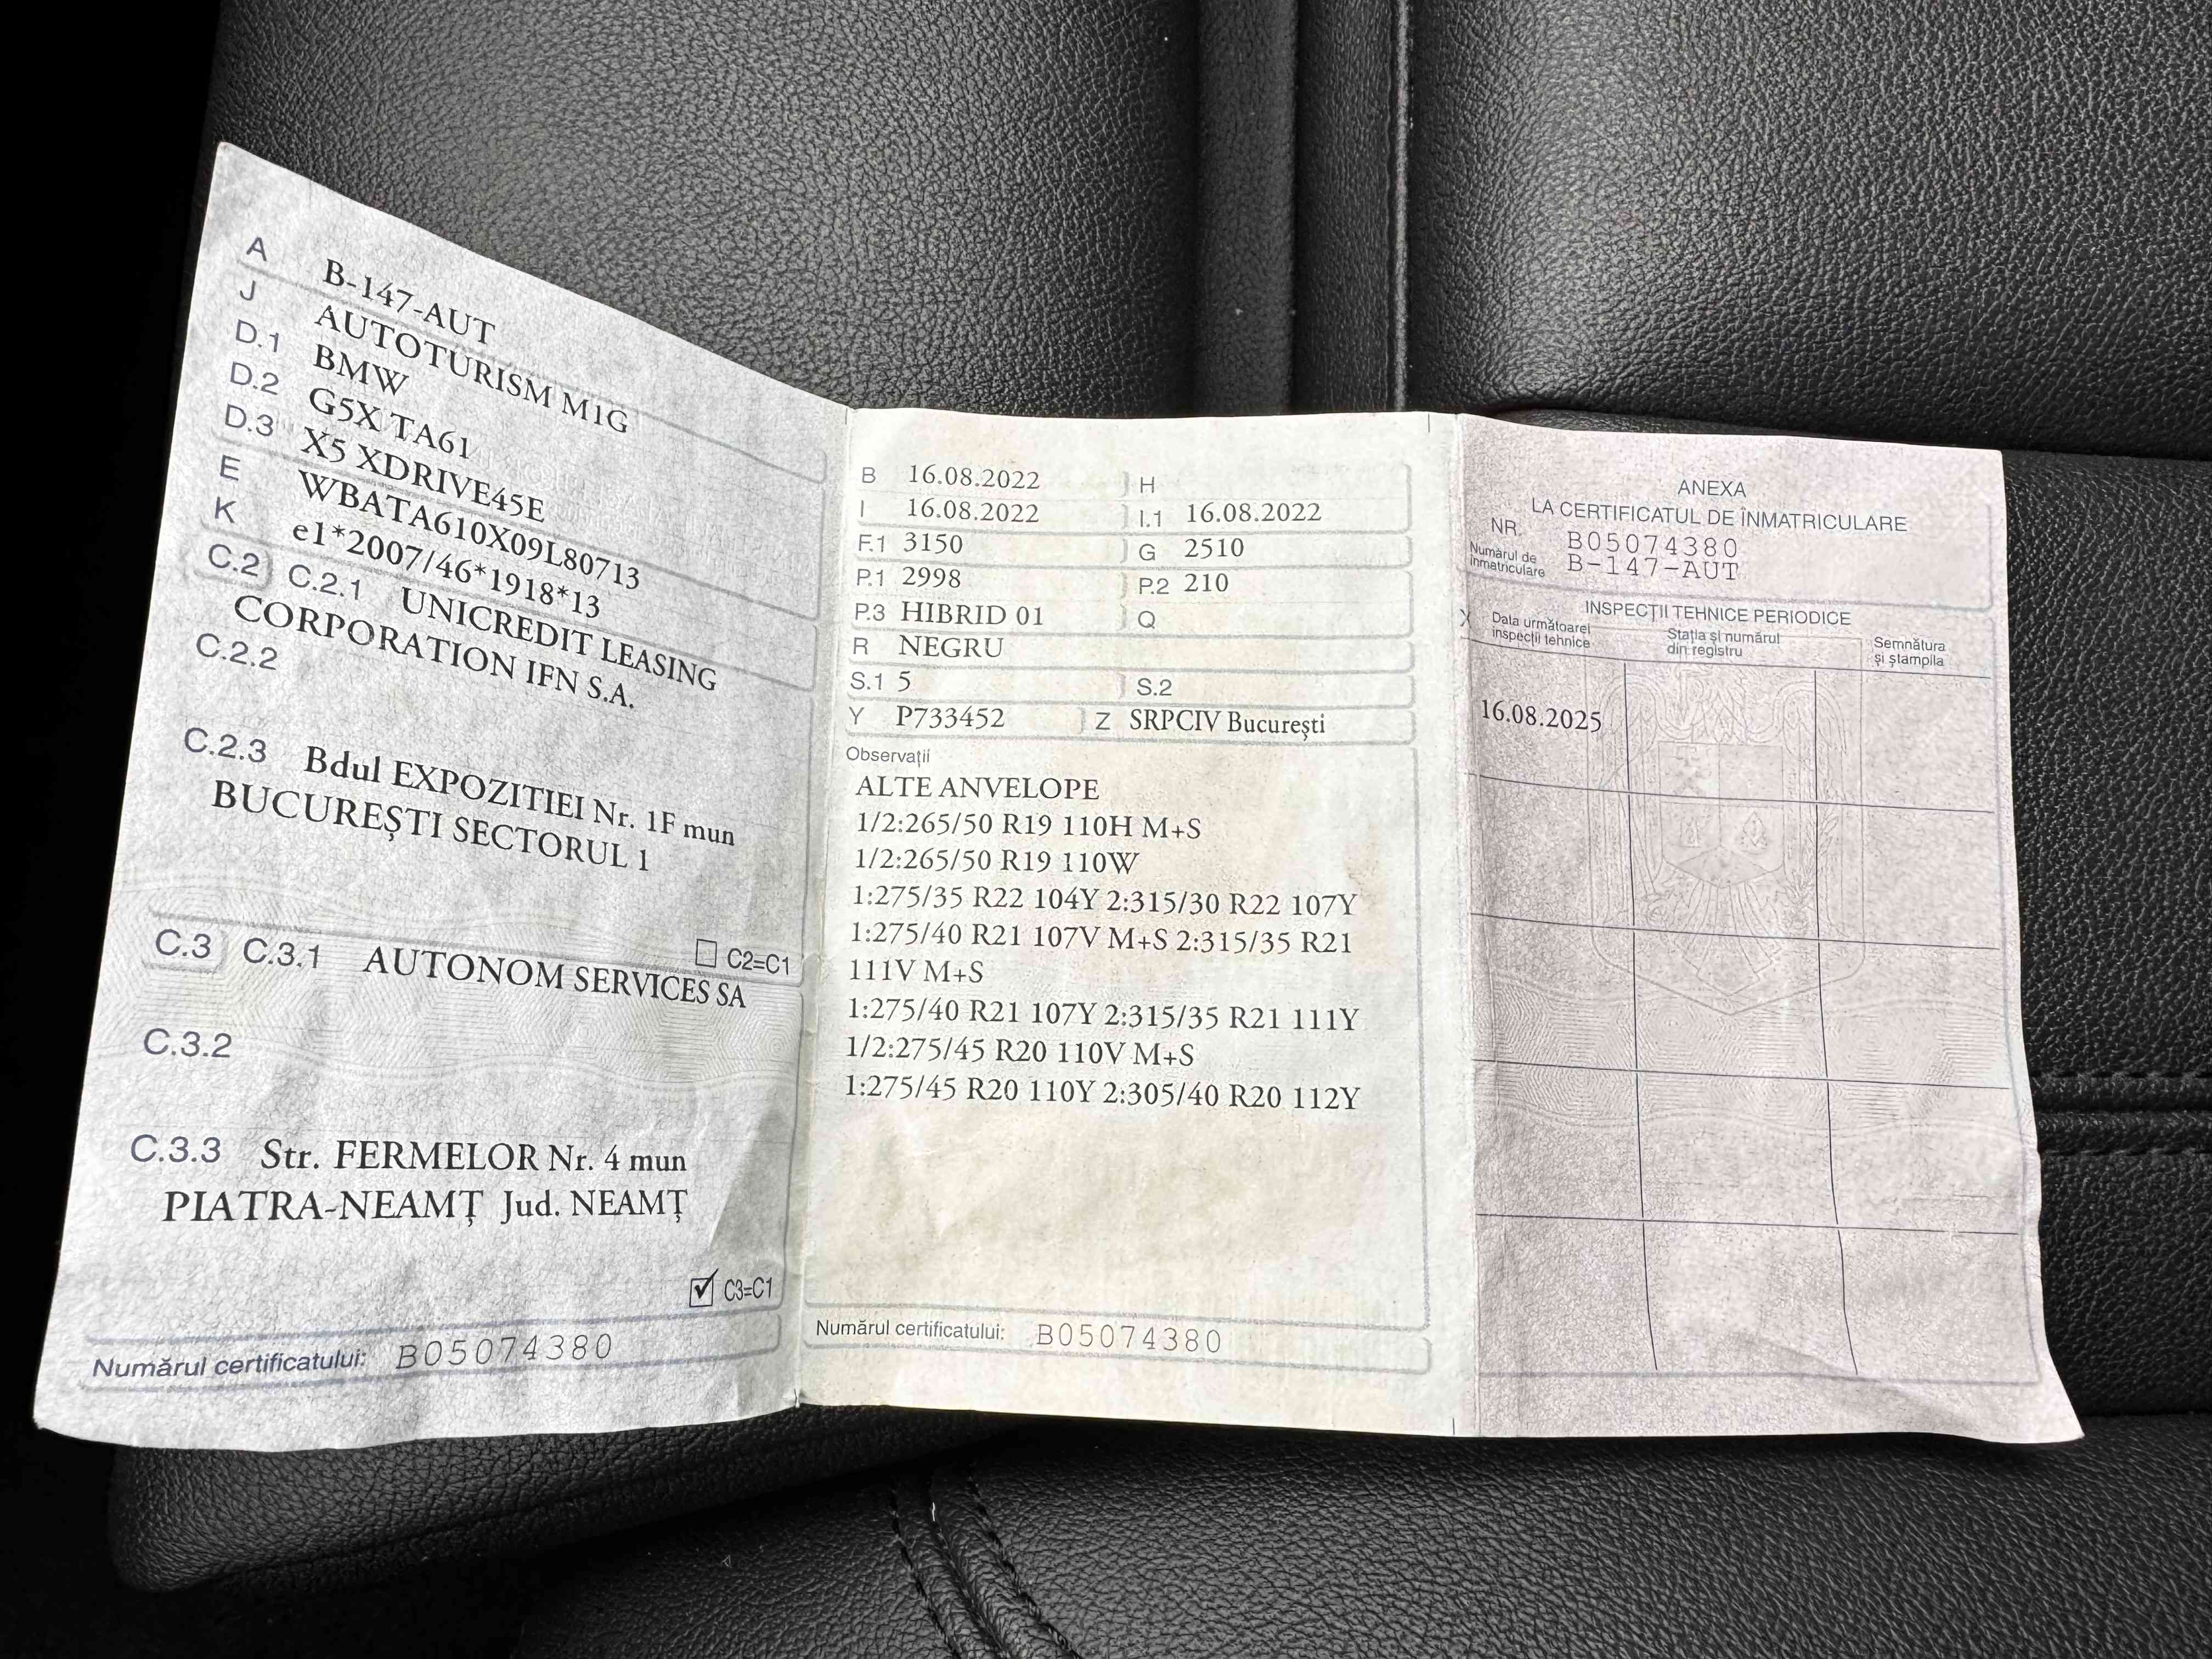 A B-147-AUT
J AUTOTURISM M1G
D.1 BMW
D.2 G5X TA61
D.3 X5 XDRIVE45E
E WBATA610X09L80713
K e1*2007/46*1918*13
C.2 C.2.1 UNICREDIT LEASING
CORPORATION IFN S.A.
C.2.2
C.2.3 Bdul EXPOZITIEI Nr. 1F mun
BUCUREŞTI SECTORUL 1
C2=C1
C.3 C.3.1 AUTONOM SERVICES SA
C.3.2
C.3.3 Str. FERMELOR Nr. 4 mun
PIATRA-NEAMŢ Jud. NEAMŢ
C3=C1
Numărul certificatului: B05074380
B 16.08.2022 H
I 16.08.2022 I.1 16.08.2022
F.1 3150 G 2510
P.1 2998 P.2 210
P.3 HIBRID 01 Q
R NEGRU
S.1 5 S.2
Y P733452 Z SRPCIV Bucureşti
Observaţii
ALTE ANVELOPE
1/2:265/50 R19 110H M+S
1/2:265/50 R19 110W
1:275/35 R22 104Y 2:315/30 R22 107Y
1:275/40 R21 107V M+S 2:315/35 R21
111V M+S
1:275/40 R21 107Y 2:315/35 R21 111Y
1/2:275/45 R20 110V M+S
1:275/45 R20 110Y 2:305/40 R20 112Y
Numărul certificatului: B05074380
ANEXA
LA CERTIFICATUL DE ÎNMATRICULARE
NR. B05074380
Numărul de
înmatriculare B-147-AUT
INSPECŢII TEHNICE PERIODICE
X Data următoarei
inspecţii tehnice
Staţia şi numărul
din registru
Semnătura
şi ştampila
16.08.2025